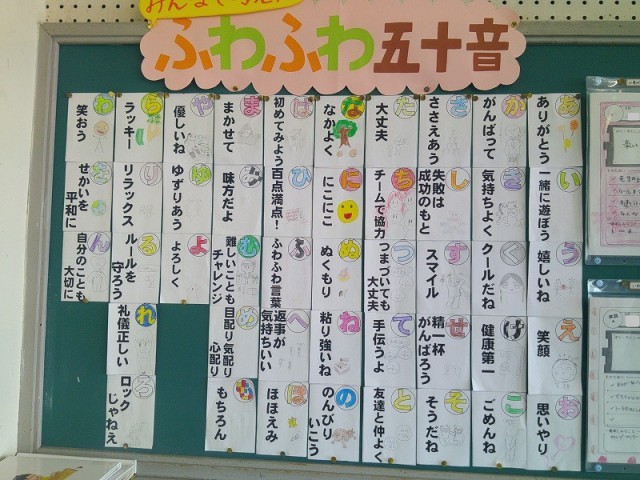 ふわふわ五十音
あ
ありがとう
い
一緒に遊ぼう
う
嬉しいね
え
笑顔
お
思いやり
か
がんばって
き
気持ちよく
く
クールだね
け
健康第一
こ
ごめんね
さ
ささえあう
し
失敗は
成功のもと
す
スマイル
せ
精一杯
がんばろう
そ
そうだね
た
大丈夫
ち
チームで協力
つ
つまづいても
大丈夫
て
手伝うよ
と
友達と仲よく
な
なかよく
に
にこにこ
ぬ
ぬくもり
ね
粘り強いね
の
のんびり
いこう
は
初めてみよう
ひ
百点満点！
ふ
ふわふわ言葉
へ
返事が
気持ちいい
ほ
ほほえみ
ま
まかせて
み
味方だよ
む
難しいことも
チャレンジ
め
目配り気配り
心配り
も
もちろん
や
優しいね
ゆ
ゆずりあう
よ
よろしく
ら
ラッキー
り
リラックス
る
ルールを
守ろう
れ
礼儀正しい
ろ
ロック
じゃねえ
わ
笑おう
を
せかいを
平和に
ん
自分のことも
大切に